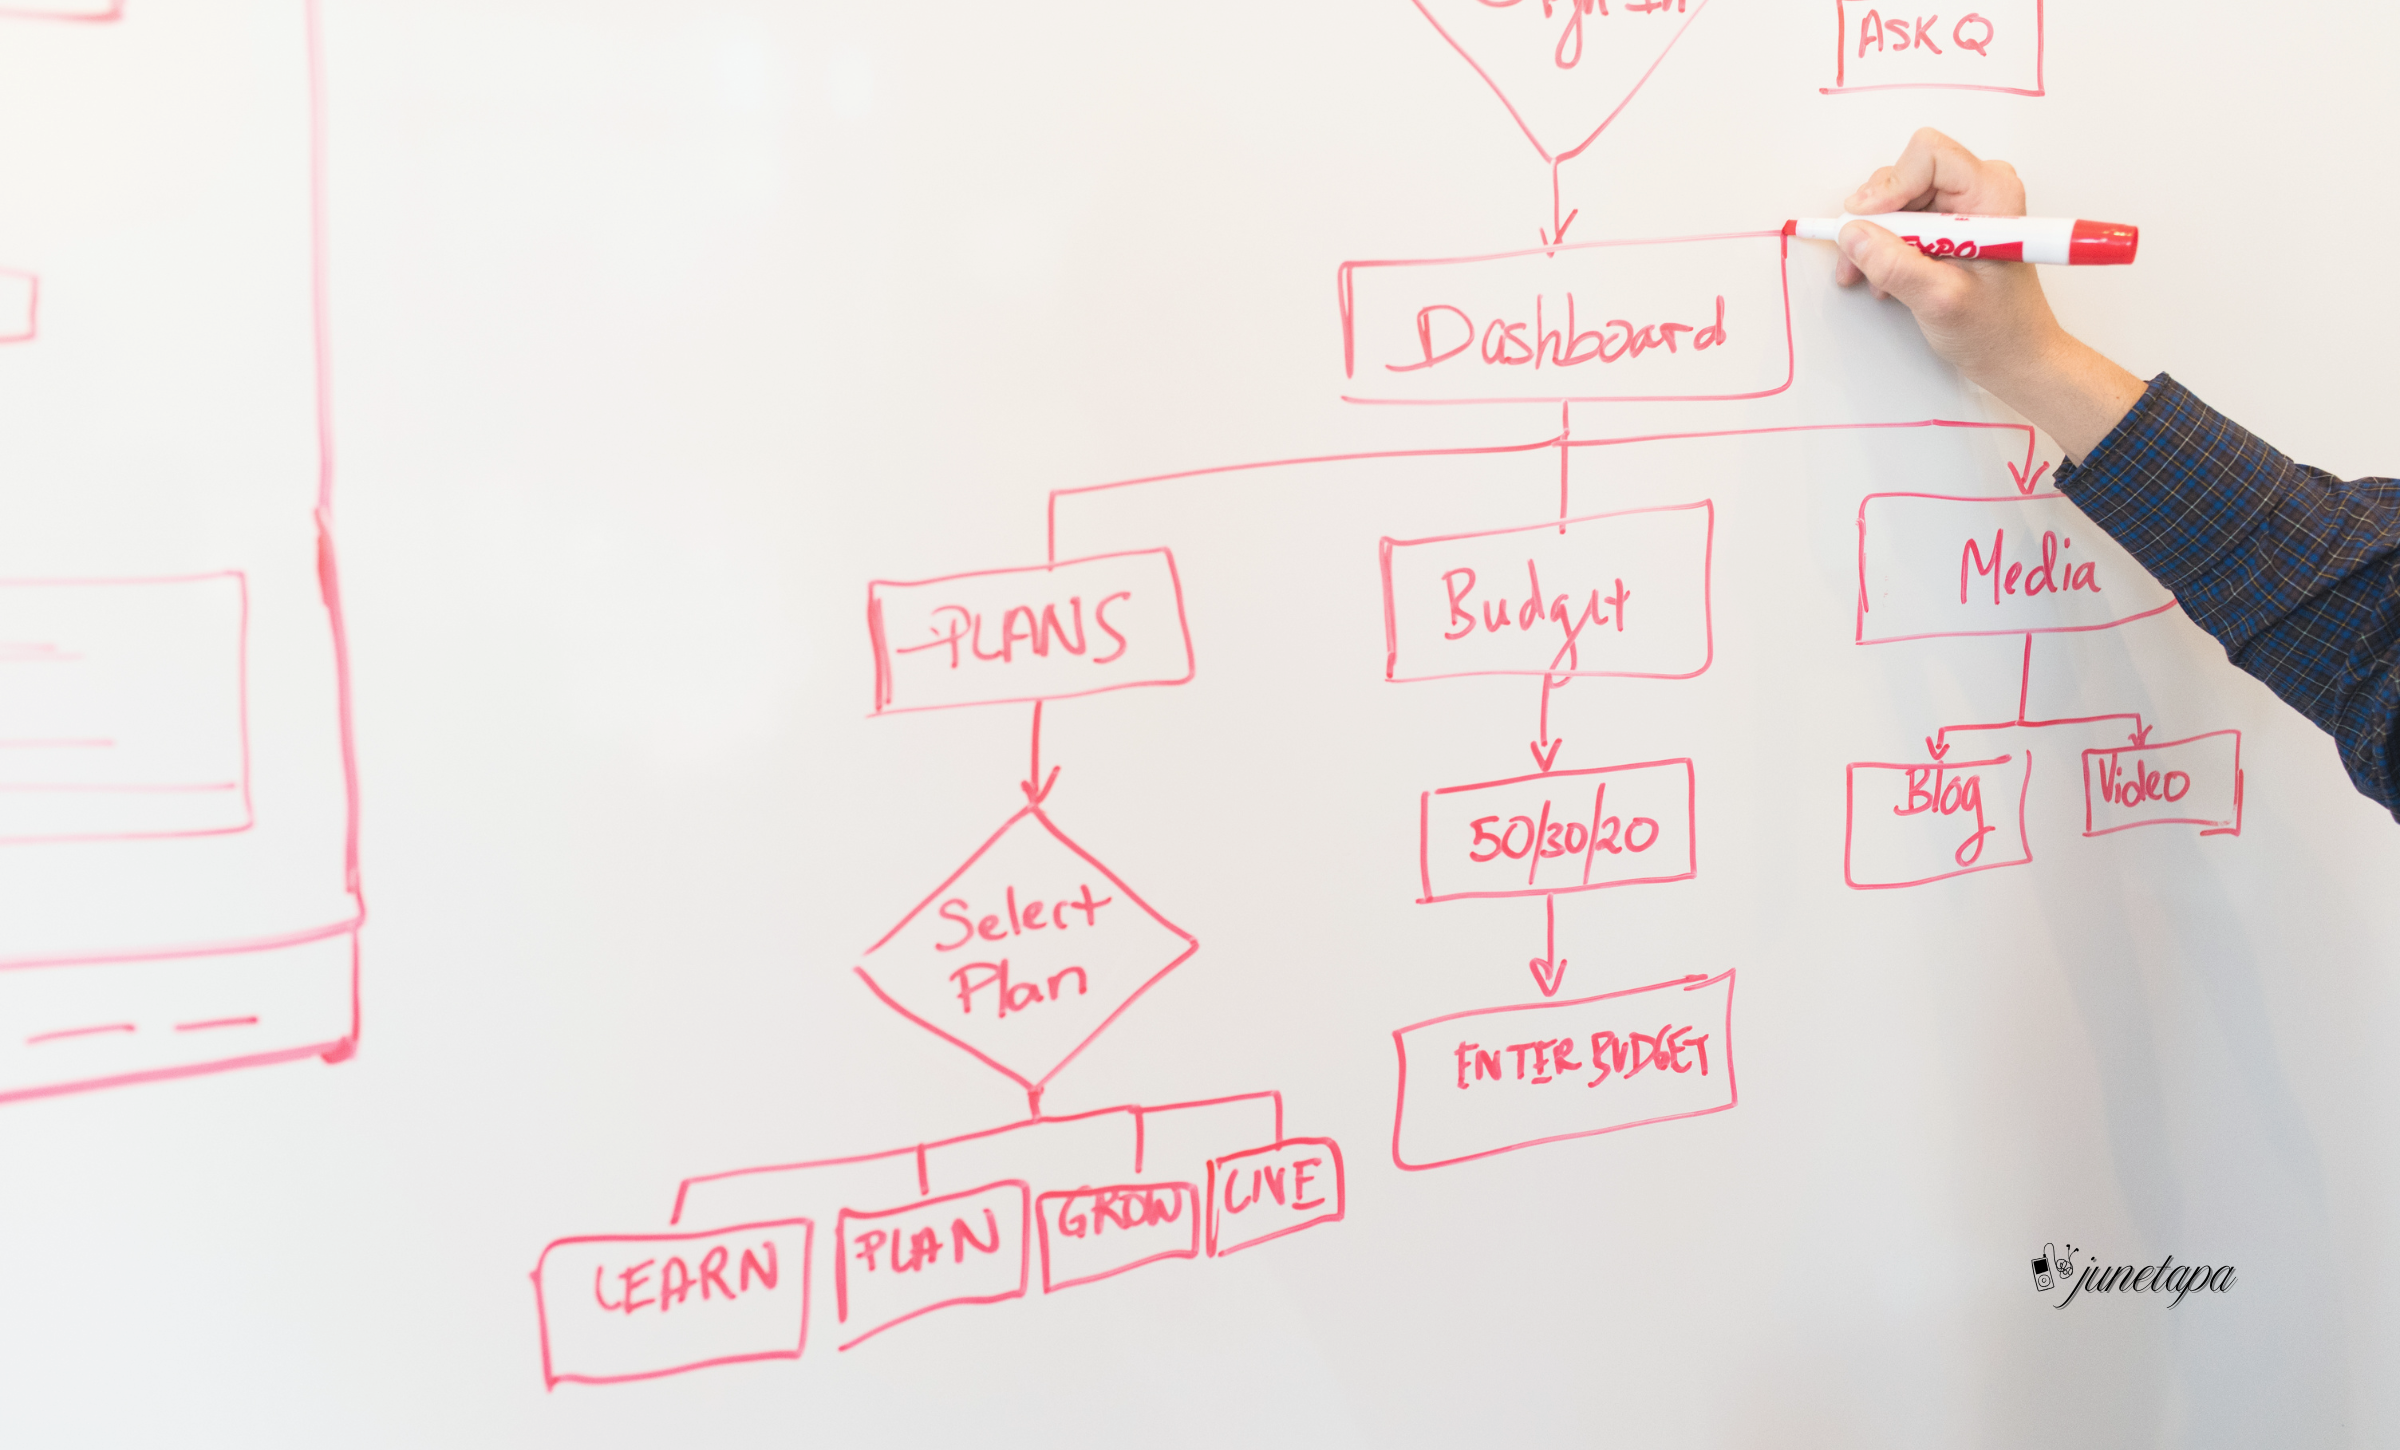 Sign In
ASK Q
EXPO
Dashboard
PLANS
Budget
Media
Select
Plan
50/30/20
Blog
Video
ENTER BUDGET
LEARN
PLAN
GROW
LIVE
junetapa